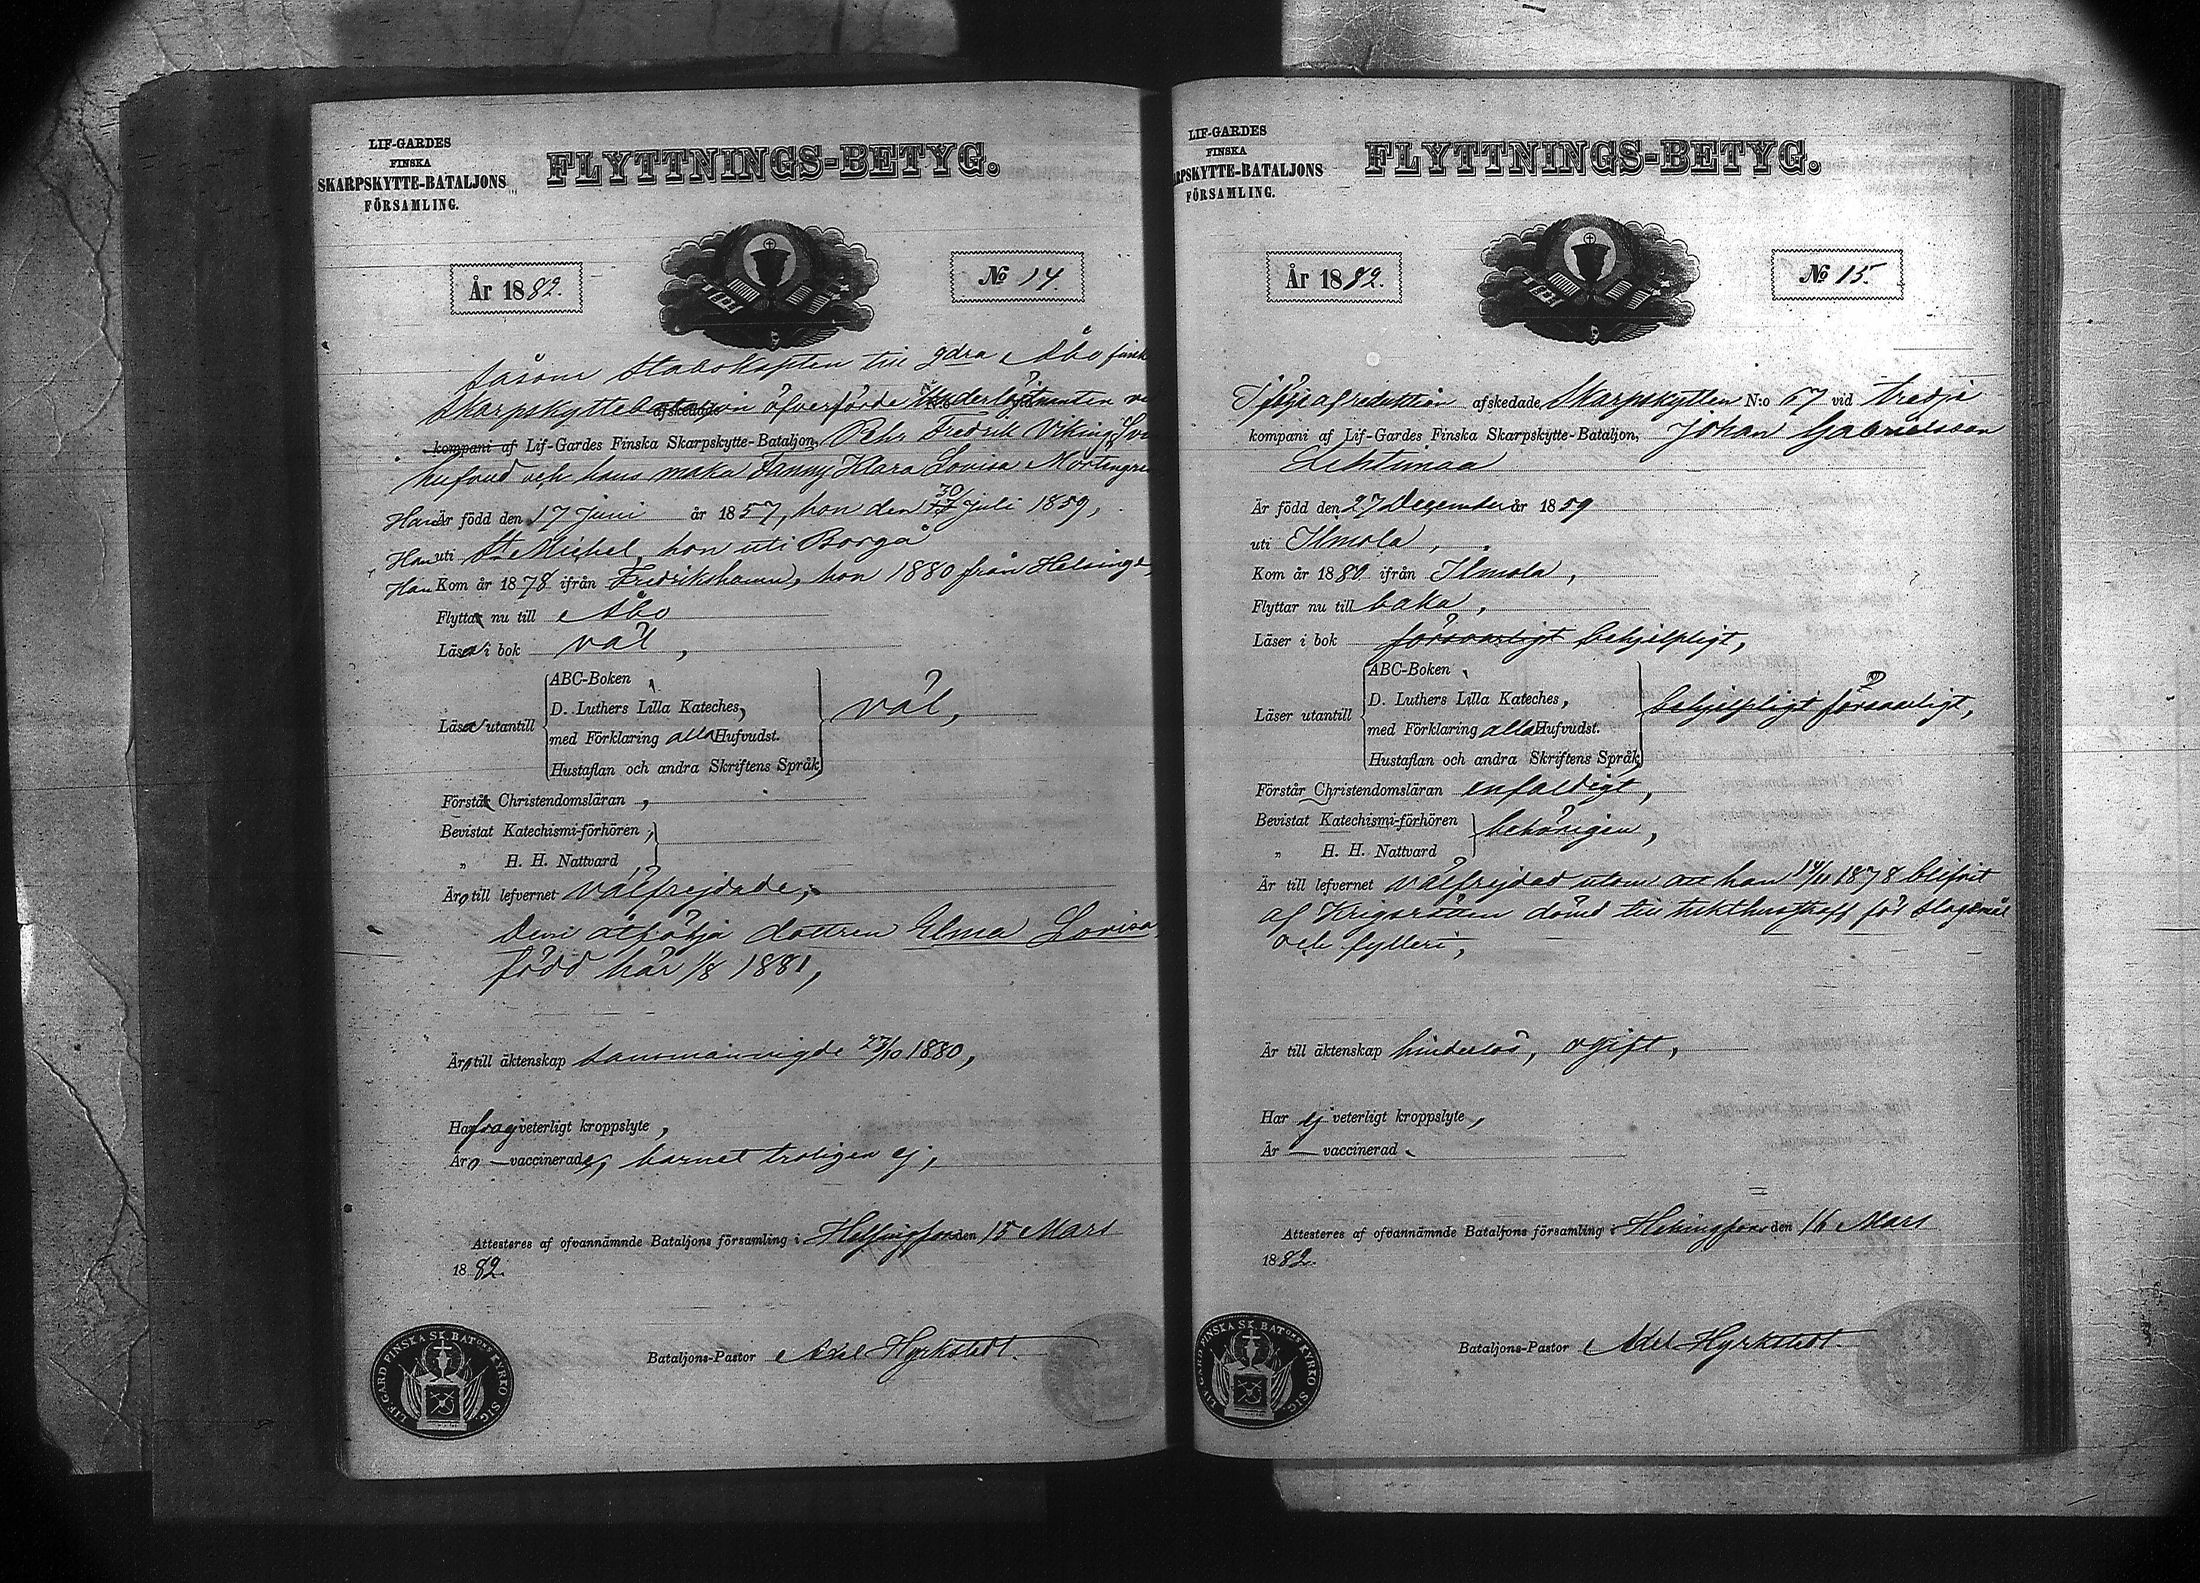 LIF-GARDES
FINSKA
SKARPSKYTTE-BATALJONS
FÖRSAMLING.
FLYTTNINGS-BETYG.
År 1882.
No 14.
såsom Stabskapten till 2dra Åbo finsk
Skarpskyttebataljon öfverförde Underlöjtnanten v
kompani af Lif-Gardes Finska Skarpskytte-Bataljon, Pehr Fredrik Viking Sv
hufvud och hans maka Fanny Klara Lovisa
Han Är född den 17 Juni år 1857, hon den 30/ Juli 1859,
Han uti St Michel, hon uti Borgå
Han Kom år 1878 ifrån Fredrikshamn, hon 1880 från Helsingf
Flytta nu till Åbo
Läsa i bok väl,
ABC-Boken,
D. Luthers Lilla Kateches,
Läsa utantill väl,
med Förklaring alla Hufvudst.
Hustaflan och andra Skriftens Språk
Förstå Christendomsläran,
Bevistat Katechismi-förhören,
„ H. H. Nattvard
Äro till lefvernet välfrejdade,
Dem åtfölja dottren Elma Lovisa
född här 1/8 1881,
Äro till äktenskap sammanvigde 1880,
Ha frag veterligt kroppslyte,
Äro — vaccinerade, barnet troligen ej,
Attesteres af ofvannämnde Bataljons församling i Helsingfors den 15 Mars
1882.
Bataljons-Pastor Axel Hyrkstedt.
LIF-GARD FINSKA SK. BATONS KYRKO SIG.
LIF-GARDES
FINSKA
RPSKYTTE-BATALJONS
FÖRSAMLING.
FLYTTNINGS-BETYG.
År 1882.
No 15.
I följe af reduktion afskedade Skarpskytten N:o 57 vid tredje
kompani af Lif-Gardes Finska Skarpskytte-Bataljon, Johan Gabrielsson
Lehtimaa
Är född den 27 December år 1859
uti Ilmola,
Kom år 1880 ifrån Ilmola,
Flyttar nu till baka,
Läser i bok försvarligt behjelpligt,
ABC-Boken,
D. Luthers Lilla Kateches,
Läser utantill behjelpligt försvarligt,
med Förklaring alla Hufvudst.
Hustaflan och andra Skriftens Språk
Förstår Christendomsläran enfaldigt,
Bevistat Katechismi-förhören behörigen,
„ H. H. Nattvard
Är till lefvernet välfrejdad utom att han 14/11 1878 blifvit
af Krigsrätten dömd till tukthusstraff för slagsmål
och fylleri,
Är till äktenskap hinderlös, ogift,
Har ej veterligt kroppslyte,
Är — vaccinerad.
Attesteres af ofvannämnde Bataljons församling i Helsingfors den 16 Mars
1882.
Bataljons-Pastor Axel Hyrkstedt.
LIF-GARD FINSKA SK. BATONS KYRKO SIG.